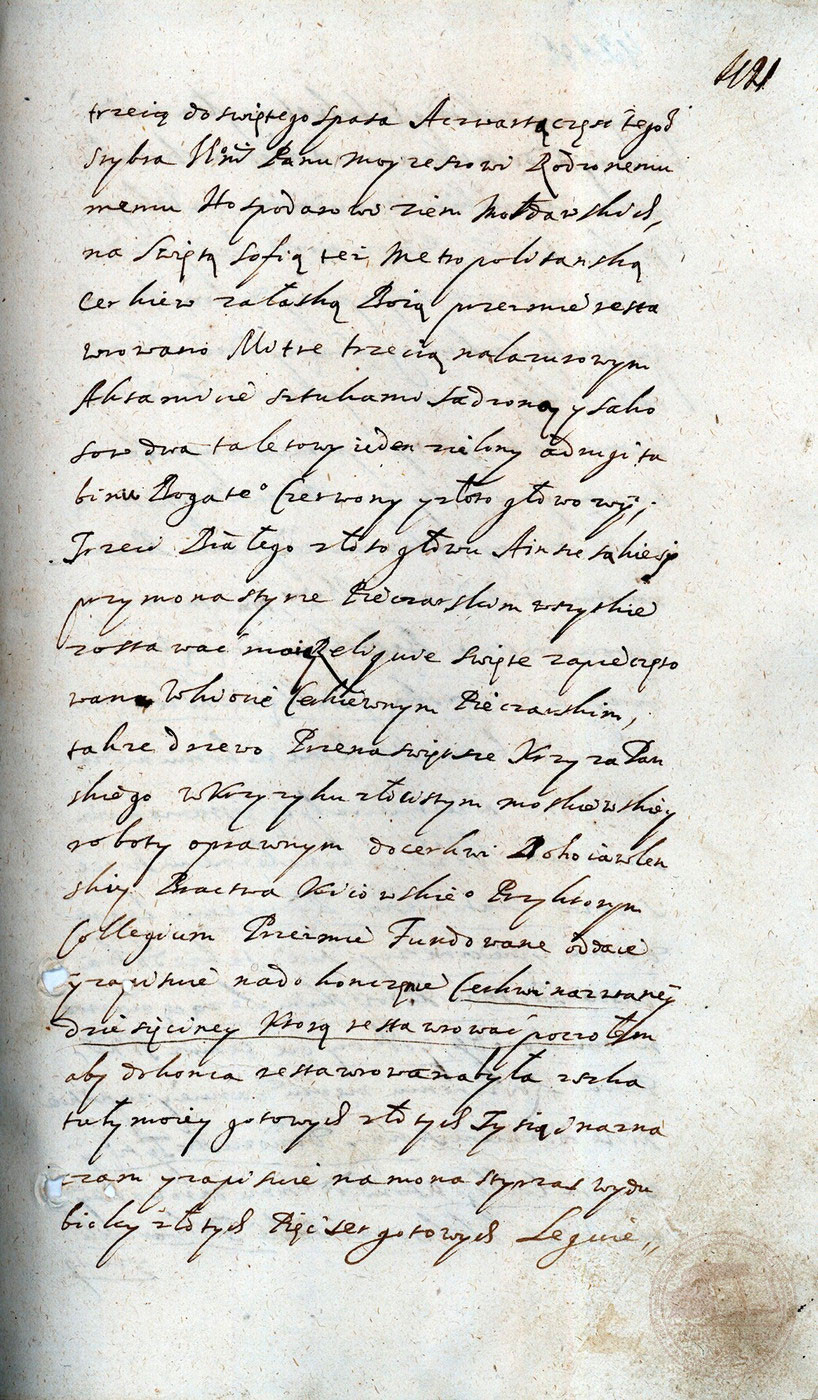 421
trzecią do swiętego Spasa A czwartą częsc tegoż
srybra Panu Moyzeszowi Rodzonemu
memu Hospodarowi ziem Mołdawskich,
na Swiętą Sofią też Metropolitanską
Cerkiew załaską Bożą przezmie resta
wrowano Mitre trzecią nalazurowym
Aksamicie sztukami sadzoną y sako
sow dwa taletowy ieden zielony a drugi ta
binu Bogateo Czerwony yzłoto głowowy,
Trzeci Białego złotogłowu Ainsze takiesz
przymonastyrze Pieczarskim wszytkie
zostawać maią Reliquie swięte zapieczęto
wane Wskrzinie Cerkiewnym Pieczarskim,
także drzewo Przenaswiętsze Krzyza Pan
skiego wKrzyzyku złocistym moskiewskiey
roboty oprawnym docerkwi Bohoiawlen
skiey Bractwa Kiiowskieo Przyktorym
Collegium Przezmie Fundowane oddaie
yzapisuie nadokonczęnie Cerkwi nazwaney
dziesięciney Ktorą restawrować począłem
aby dokonca restawrowana była zszka
tuły moiey gotowych złotych Tysiąc nazna
czam yzapisuie namonastyrz wydu
bicky złotych Pięcset gotowych Leguie,,